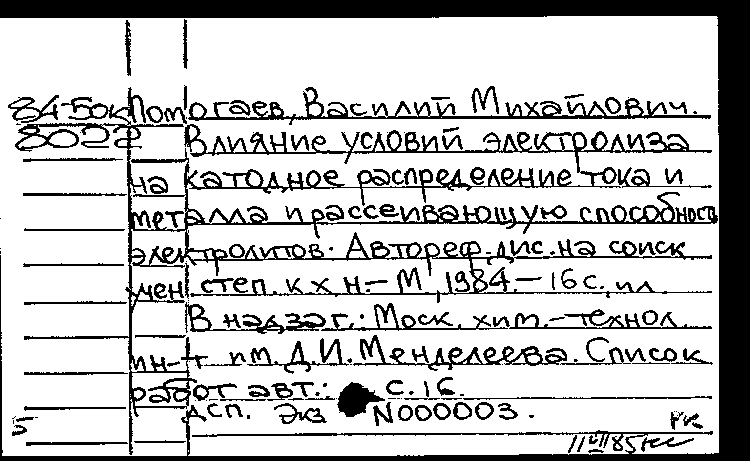 84-5ок Помогаев, Василий Михайлович.
8022 Влияние условий электролиза
на катодное распределение тока и
металла и рассеивающую способность
электролитов: Автореф. дис. на соиск.
учен. степ. к. х. н. - М, 1984. - 16 с., ил.
В надзаг.: Моск. хим.-технол.
ин-т им. Д.И. Менделеева. Список
работ авт.: с. 16.
ДСП. Экз N000003.
5 РК
11 VII 85